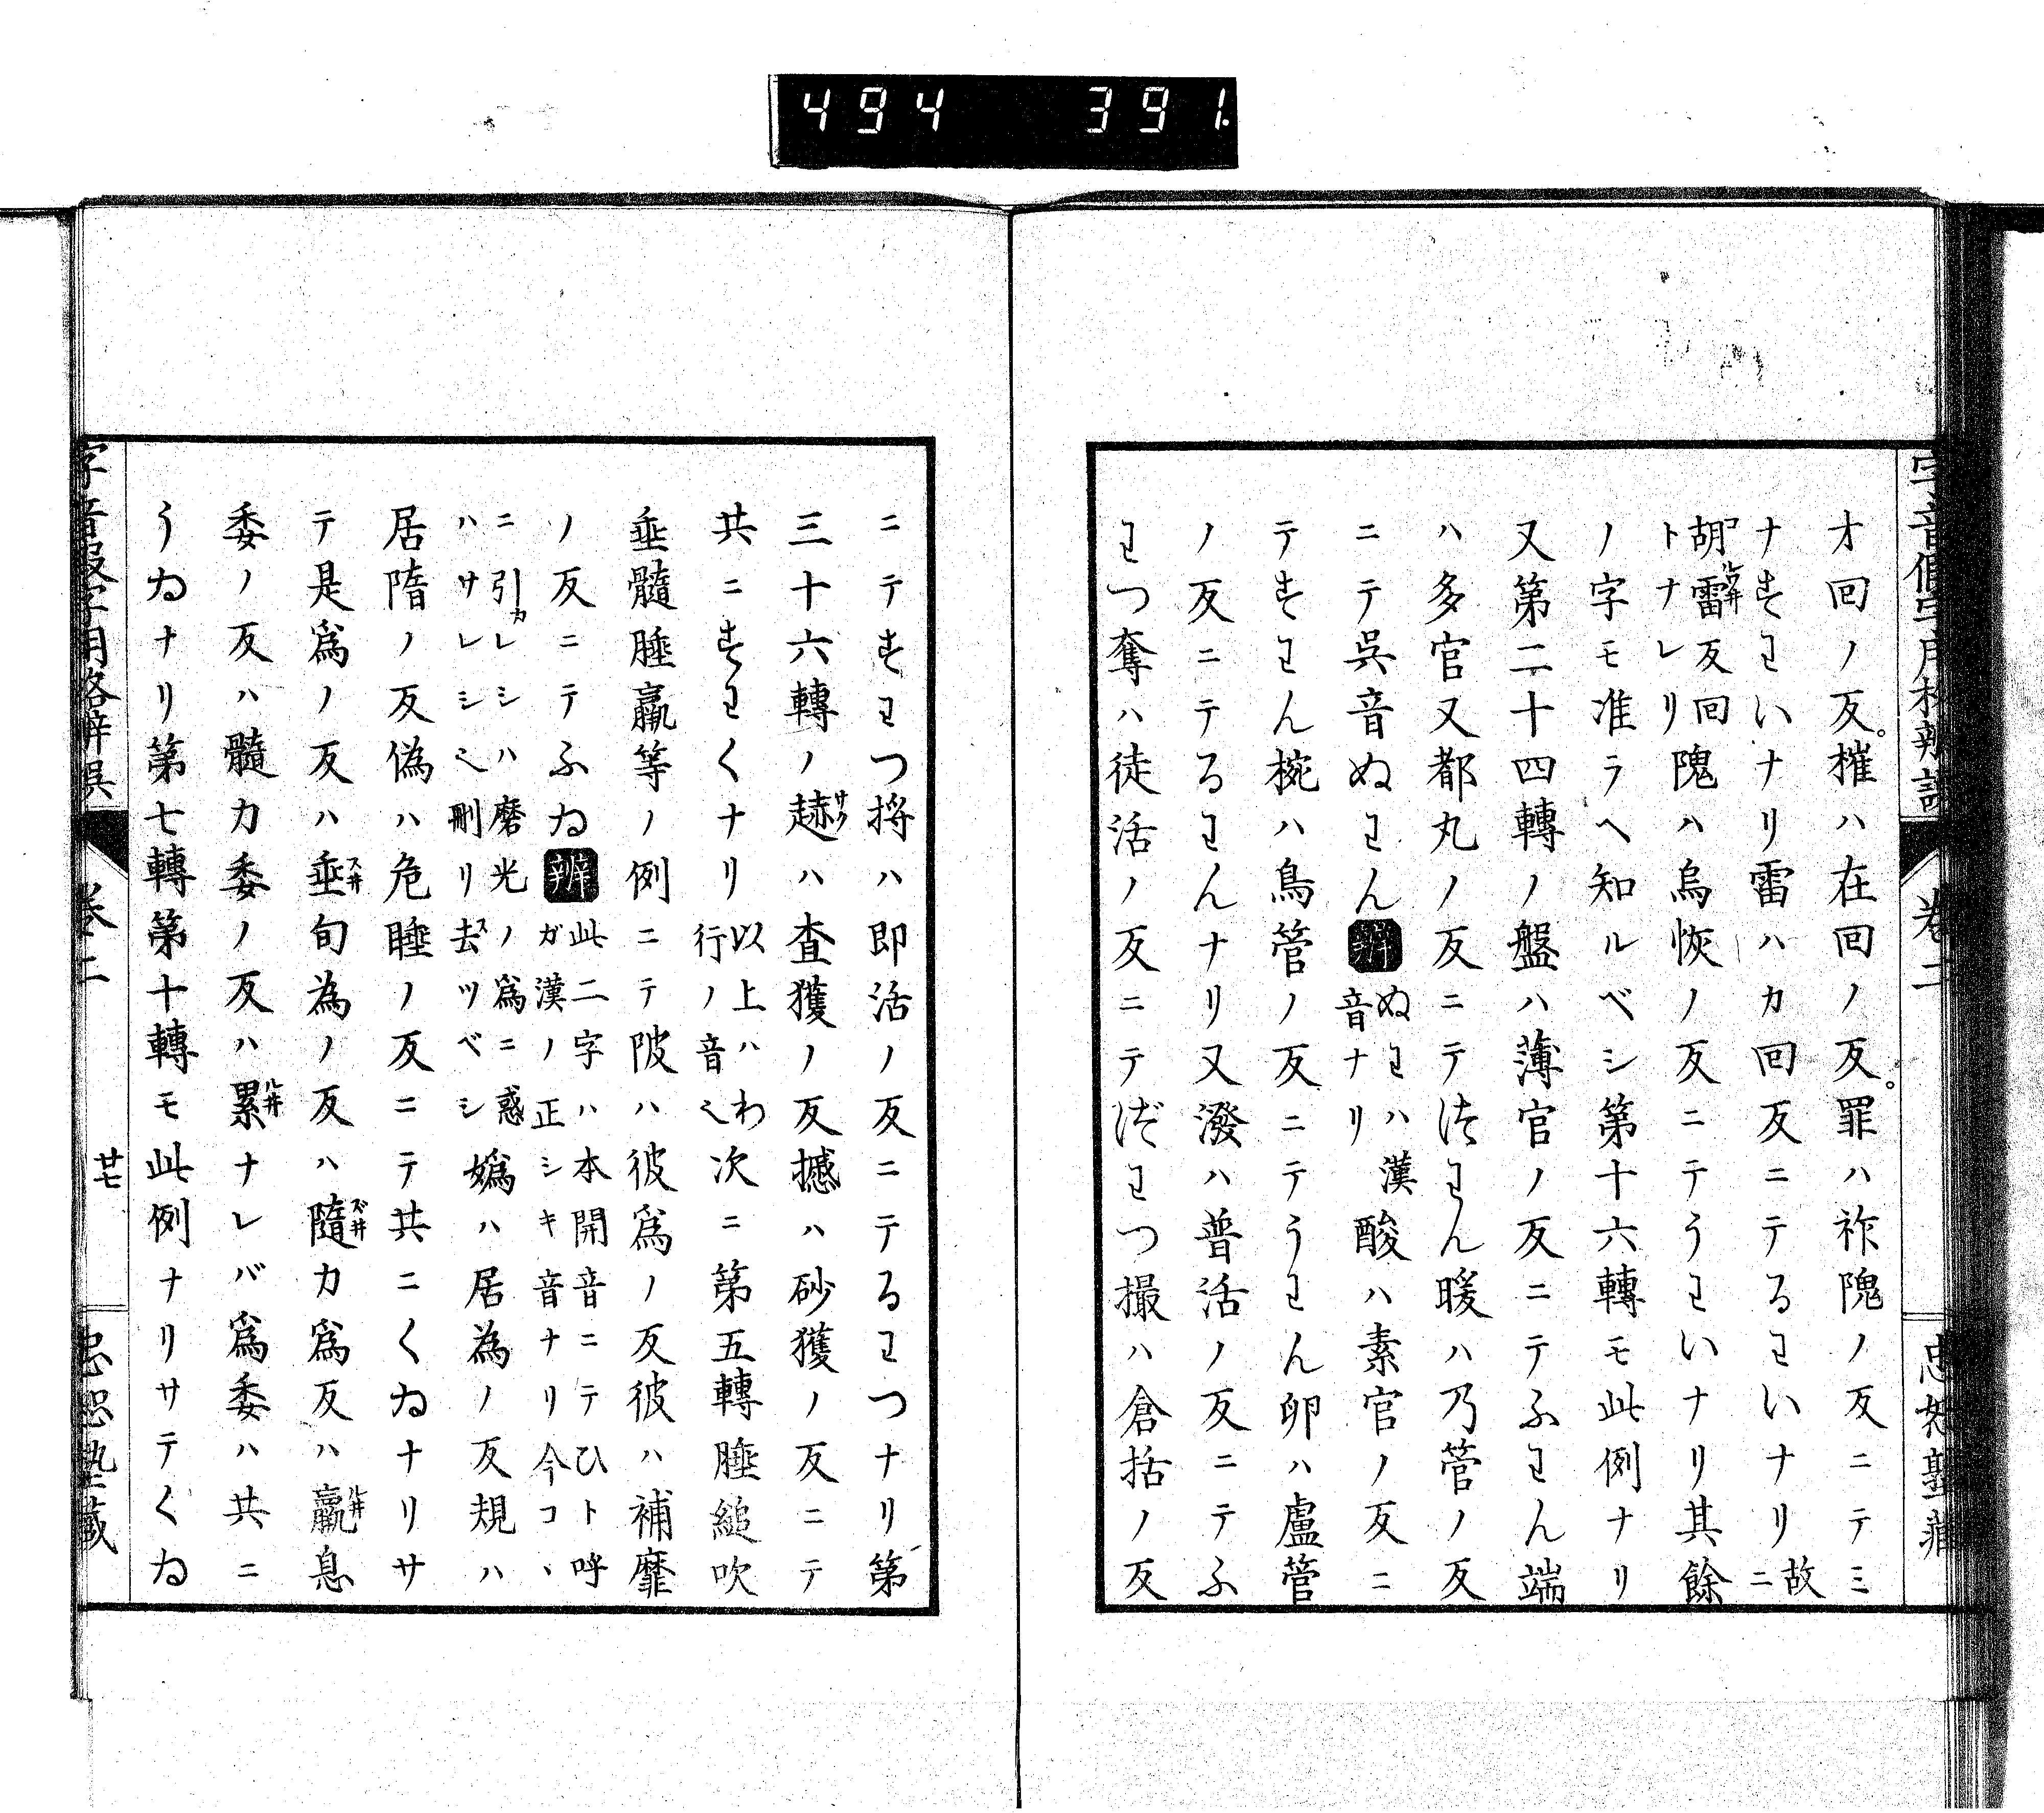 494 391
オ回ノ反。摧ハ在回ノ反。罪ハ祚隗ノ反ニテミ
ナすわいナリ雷ハカ回反ニテるわいナリ故ニ
胡雷反回トナレリ隗ハ烏恢ノ反ニテうわいナリ其餘
ノ字モ准ラヘ知ルベシ第十六轉モ此例ナリ
又第二十四轉ノ盤ハ薄官ノ反ニテふわん端
ハ多官又都丸ノ反ニテつわん暖ハ乃管ノ反
ニテ呉音ぬわん辨ぬわハ漢音ナリ酸ハ素官ノ反ニ
テすわん椀ハ烏管ノ反ニテうわん卵ハ盧管
ノ反ニテるわんナリ又潑ハ普活ノ反ニテふ
わつ奪ハ徒活ノ反ニテづわつ撮ハ倉括ノ反
ニテすわつ捋ハ即活ノ反ニテるわつナリ第
三十六轉ノ趚ハ査獲ノ反摵ハ砂獲ノ反ニテ
共ニすわくナリ以上ハわ行ノ音也次ニ第五轉腄縋吹
垂髓腄羸等ノ例ニテ陂ハ彼爲ノ反彼ハ補靡
ノ反ニテふゐ辨此二字ハ本開音ニテひト呼ガ漢ノ正シキ音ナリ今コヽ
ニ引カレシハ磨光ノ爲ニ惑ハサレシ也刪リ去ツベシ嬀ハ居為ノ反規ハ
居隋ノ反偽ハ危睡ノ反ニテ共ニくゐナリサ
テ是爲ノ反ハ垂旬為ノ反ハ隨力爲反ハ羸息
委ノ反ハ髓力委ノ反ハ累ナレバ爲委ハ共ニ
うゐナリ第七轉第十轉モ此例ナリサテくゐ
字音假字用格辨誤
卷二
廿七
忠恕塾藏